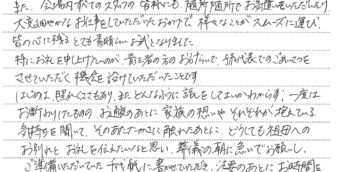 また、会場内外でのスタッフの皆様にも随所随所でお気遣いいただいたり
大変細やかなお仕事をしていただいたおかげで、様々なことがスムーズに運び、
皆の心に残るとても素晴らしいお式となりました。
特にお礼を申し上げたいのが、貴社者の方のお計らいで、孫代表でごあいさつを
させていただく機会を設けていただいたことです
はじめは、照れくささもあり、またどんなふうに話をしてよいかわからず、一度は
お断りしたものの、お通夜のあとに家族の想いやそれぞれが抱えている
気持ちを聞いて、そのあたたかさに触れたあとに、どうしても祖母への
お別れとお礼を伝えたいと思い、葬儀の朝に急いでお願いし、
ご準備いただいていた千代紙に書かせていただき、法要のあとにお時間を